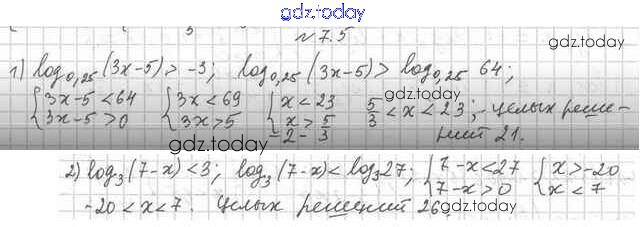 gdz.today
№7.5
gdz.today
1) log₀,₂₅(3x-5)>-3; log₀,₂₅(3x-5)>log₀,₂₅ 64;
{3x-5<64 {3x<69 {x<23 5/3<x<23; - целых реше-
{3x-5>0 {3x>5 {x>5/3 ний 21.
=2-3
gdz.today
gdz.today
2) log₃(7-x)<3; log₃(7-x)<log₃27; {7-x<27 {x>-20
{7-x>0 {x<7
-20<x<7. Целых решений 26.
gdz.today
gdz.today